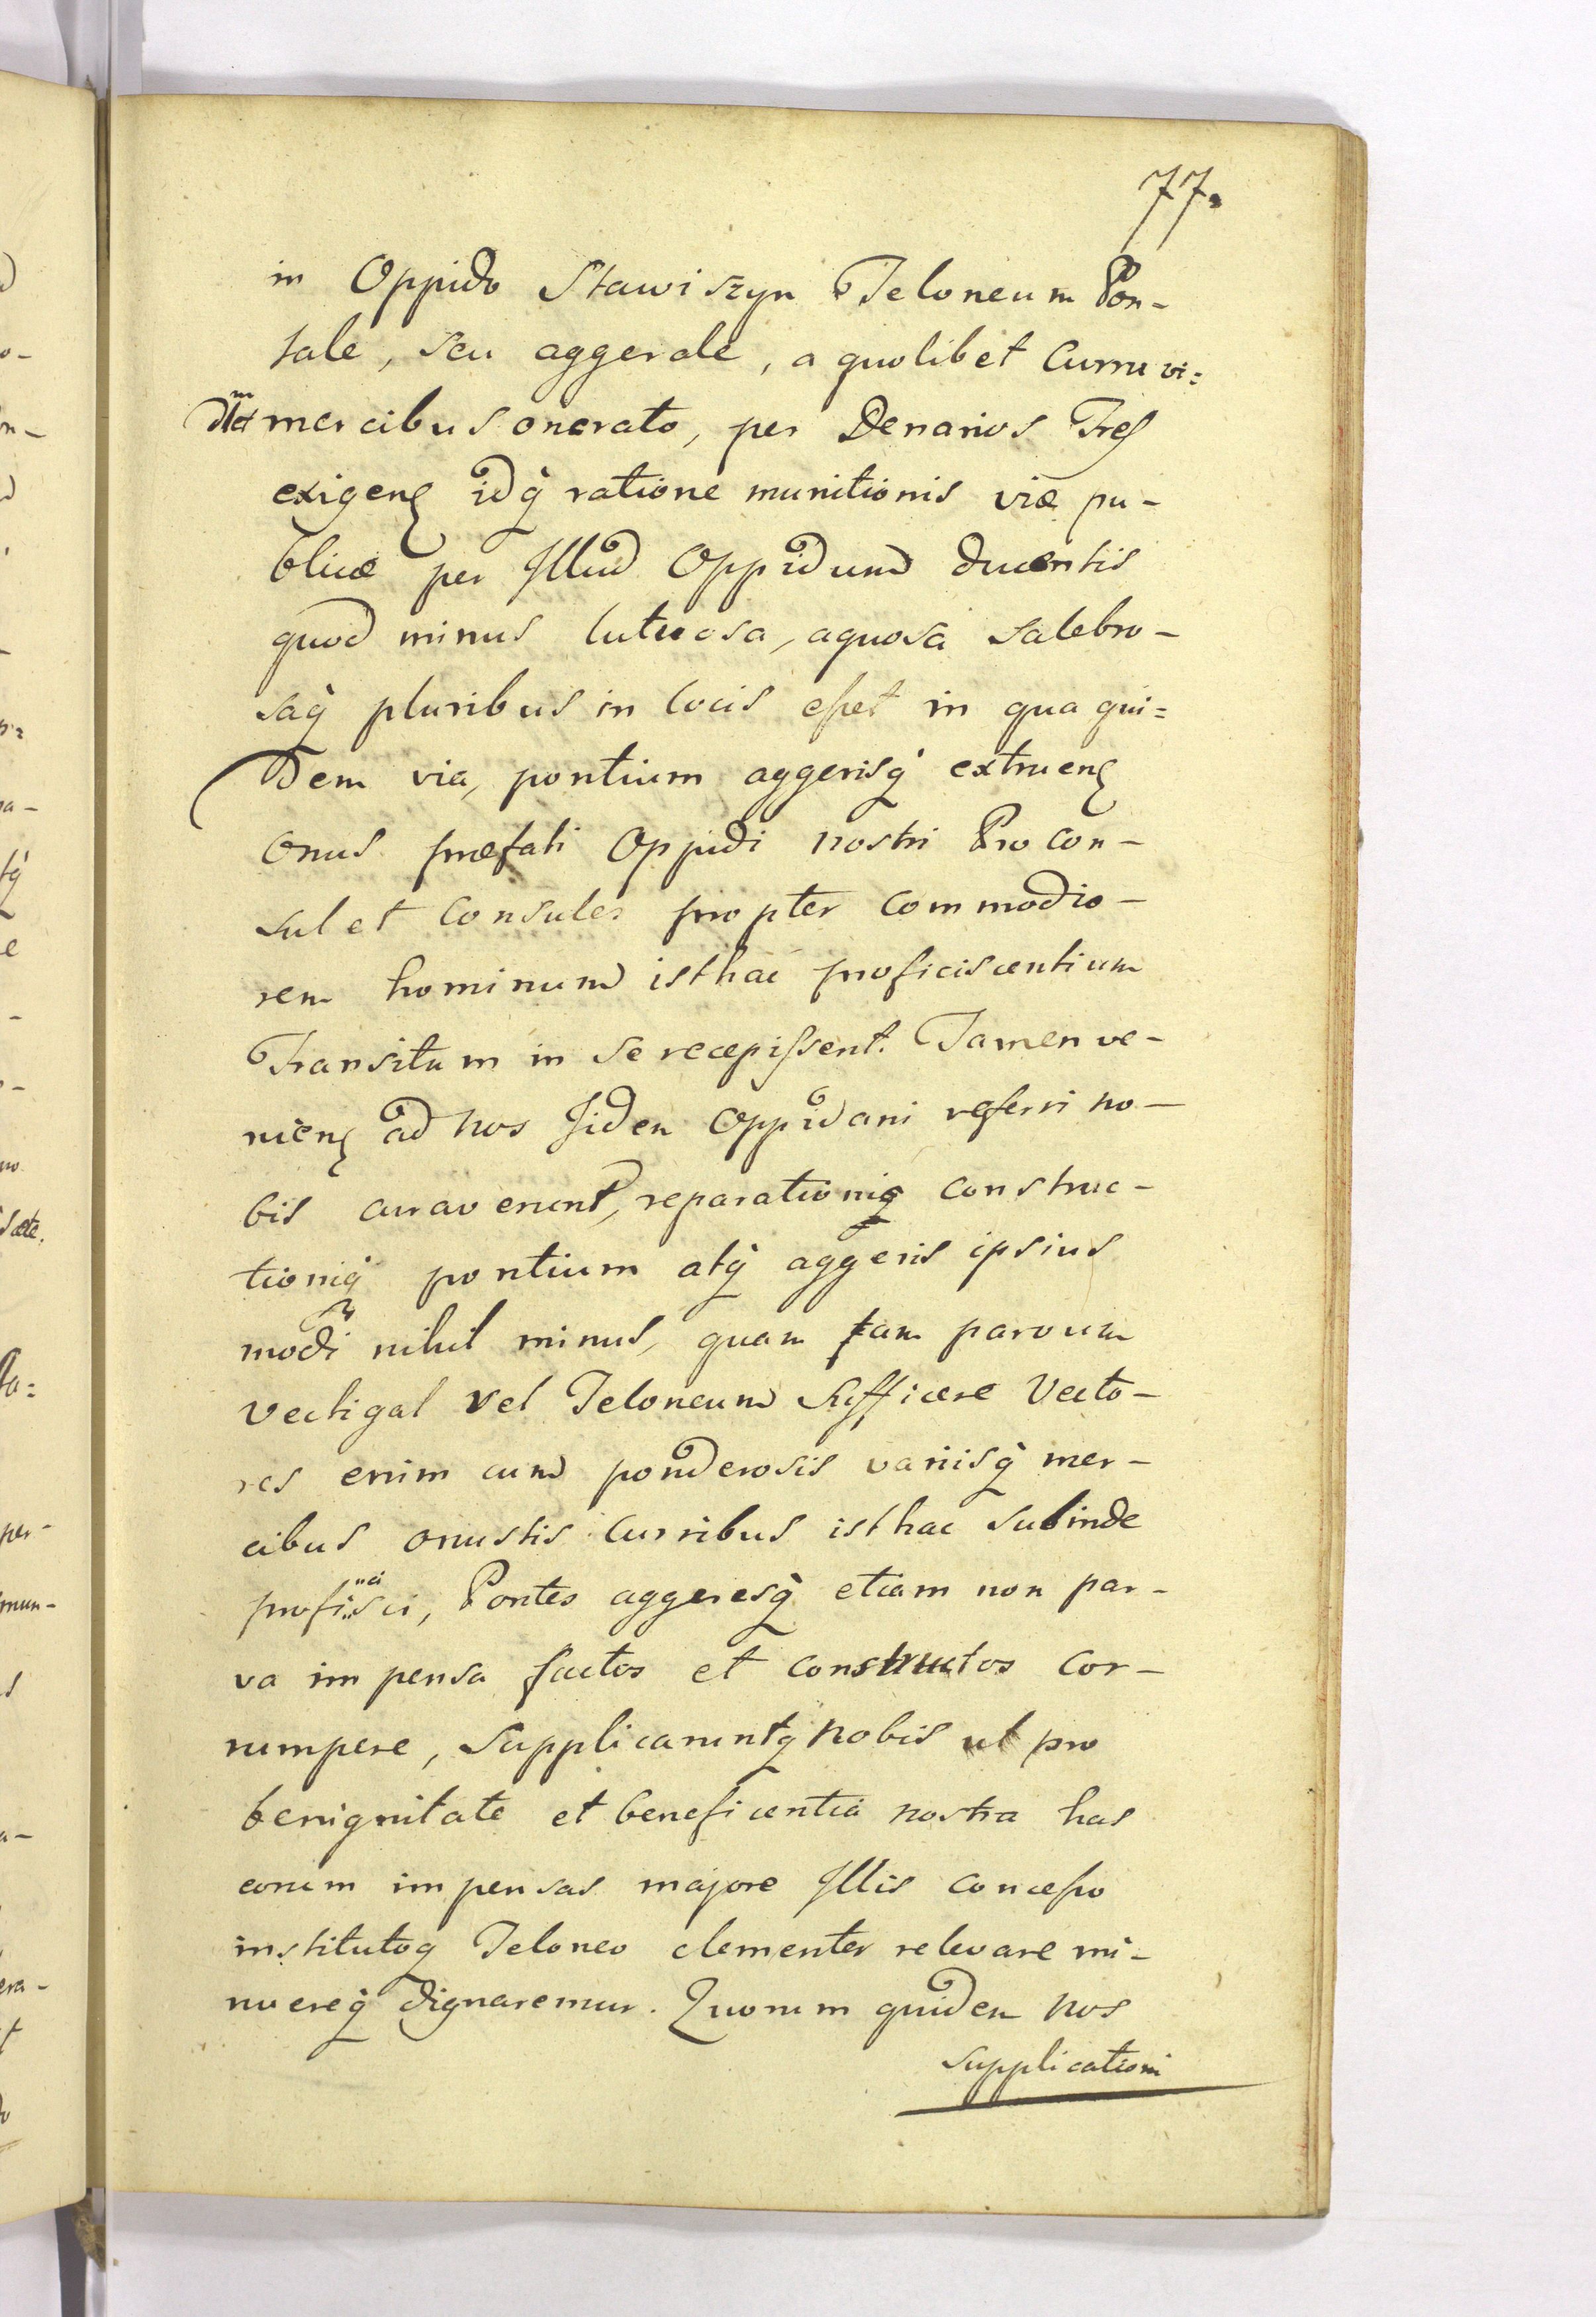 77.
in Oppido Stawiszyn Teloneum Pon-
tale, seu aggerale, a quolibet Curru vi=
mercibus onerato, per Denarios Tres
exigen idq ratione munitionis viæ pu-
blicæ per Illud Oppidum ducentis
quod minus lutuosa, aquosa salebro-
saq pluribus in locis esset in qua qui=
dem via, pontium aggerisq extruen
onus præfati Oppidi nostri Procon-
sul et Consules propter commodio-
rem hominum isthac proficiscentium
Transitum in se recepissent. Tamen ve-
nien ad nos Iidem Oppidani referri no-
bis curaverunt, reparationiq construc-
tioniq pontium atq aggeris ipsius
modi nihil minus, quam tam parvum
Vectigal vel Teloneum sufficere Vecto-
res enim cum ponderosis variisq mer-
cibus onustis Curribus isthac subinde
proficisci, Pontes aggeresq etiam non par-
va impensa factos et constructos cor-
rumpere, supplicaruntq nobis ut pro
benignitate et beneficentia nostra has
eorum impensas majore Illis concesso
institutoq Teloneo clementer relevare mi-
nuereq dignaremur. Quorum quidem nos
supplicationi